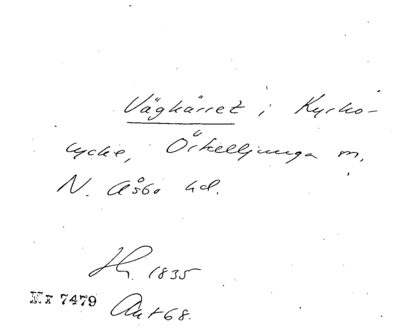 Vägkärret i Kyrko-
rycke, Örkelljunga sn,
N. Åsbo hd.
Lh. 1835
Nr 7479
Akt 68.